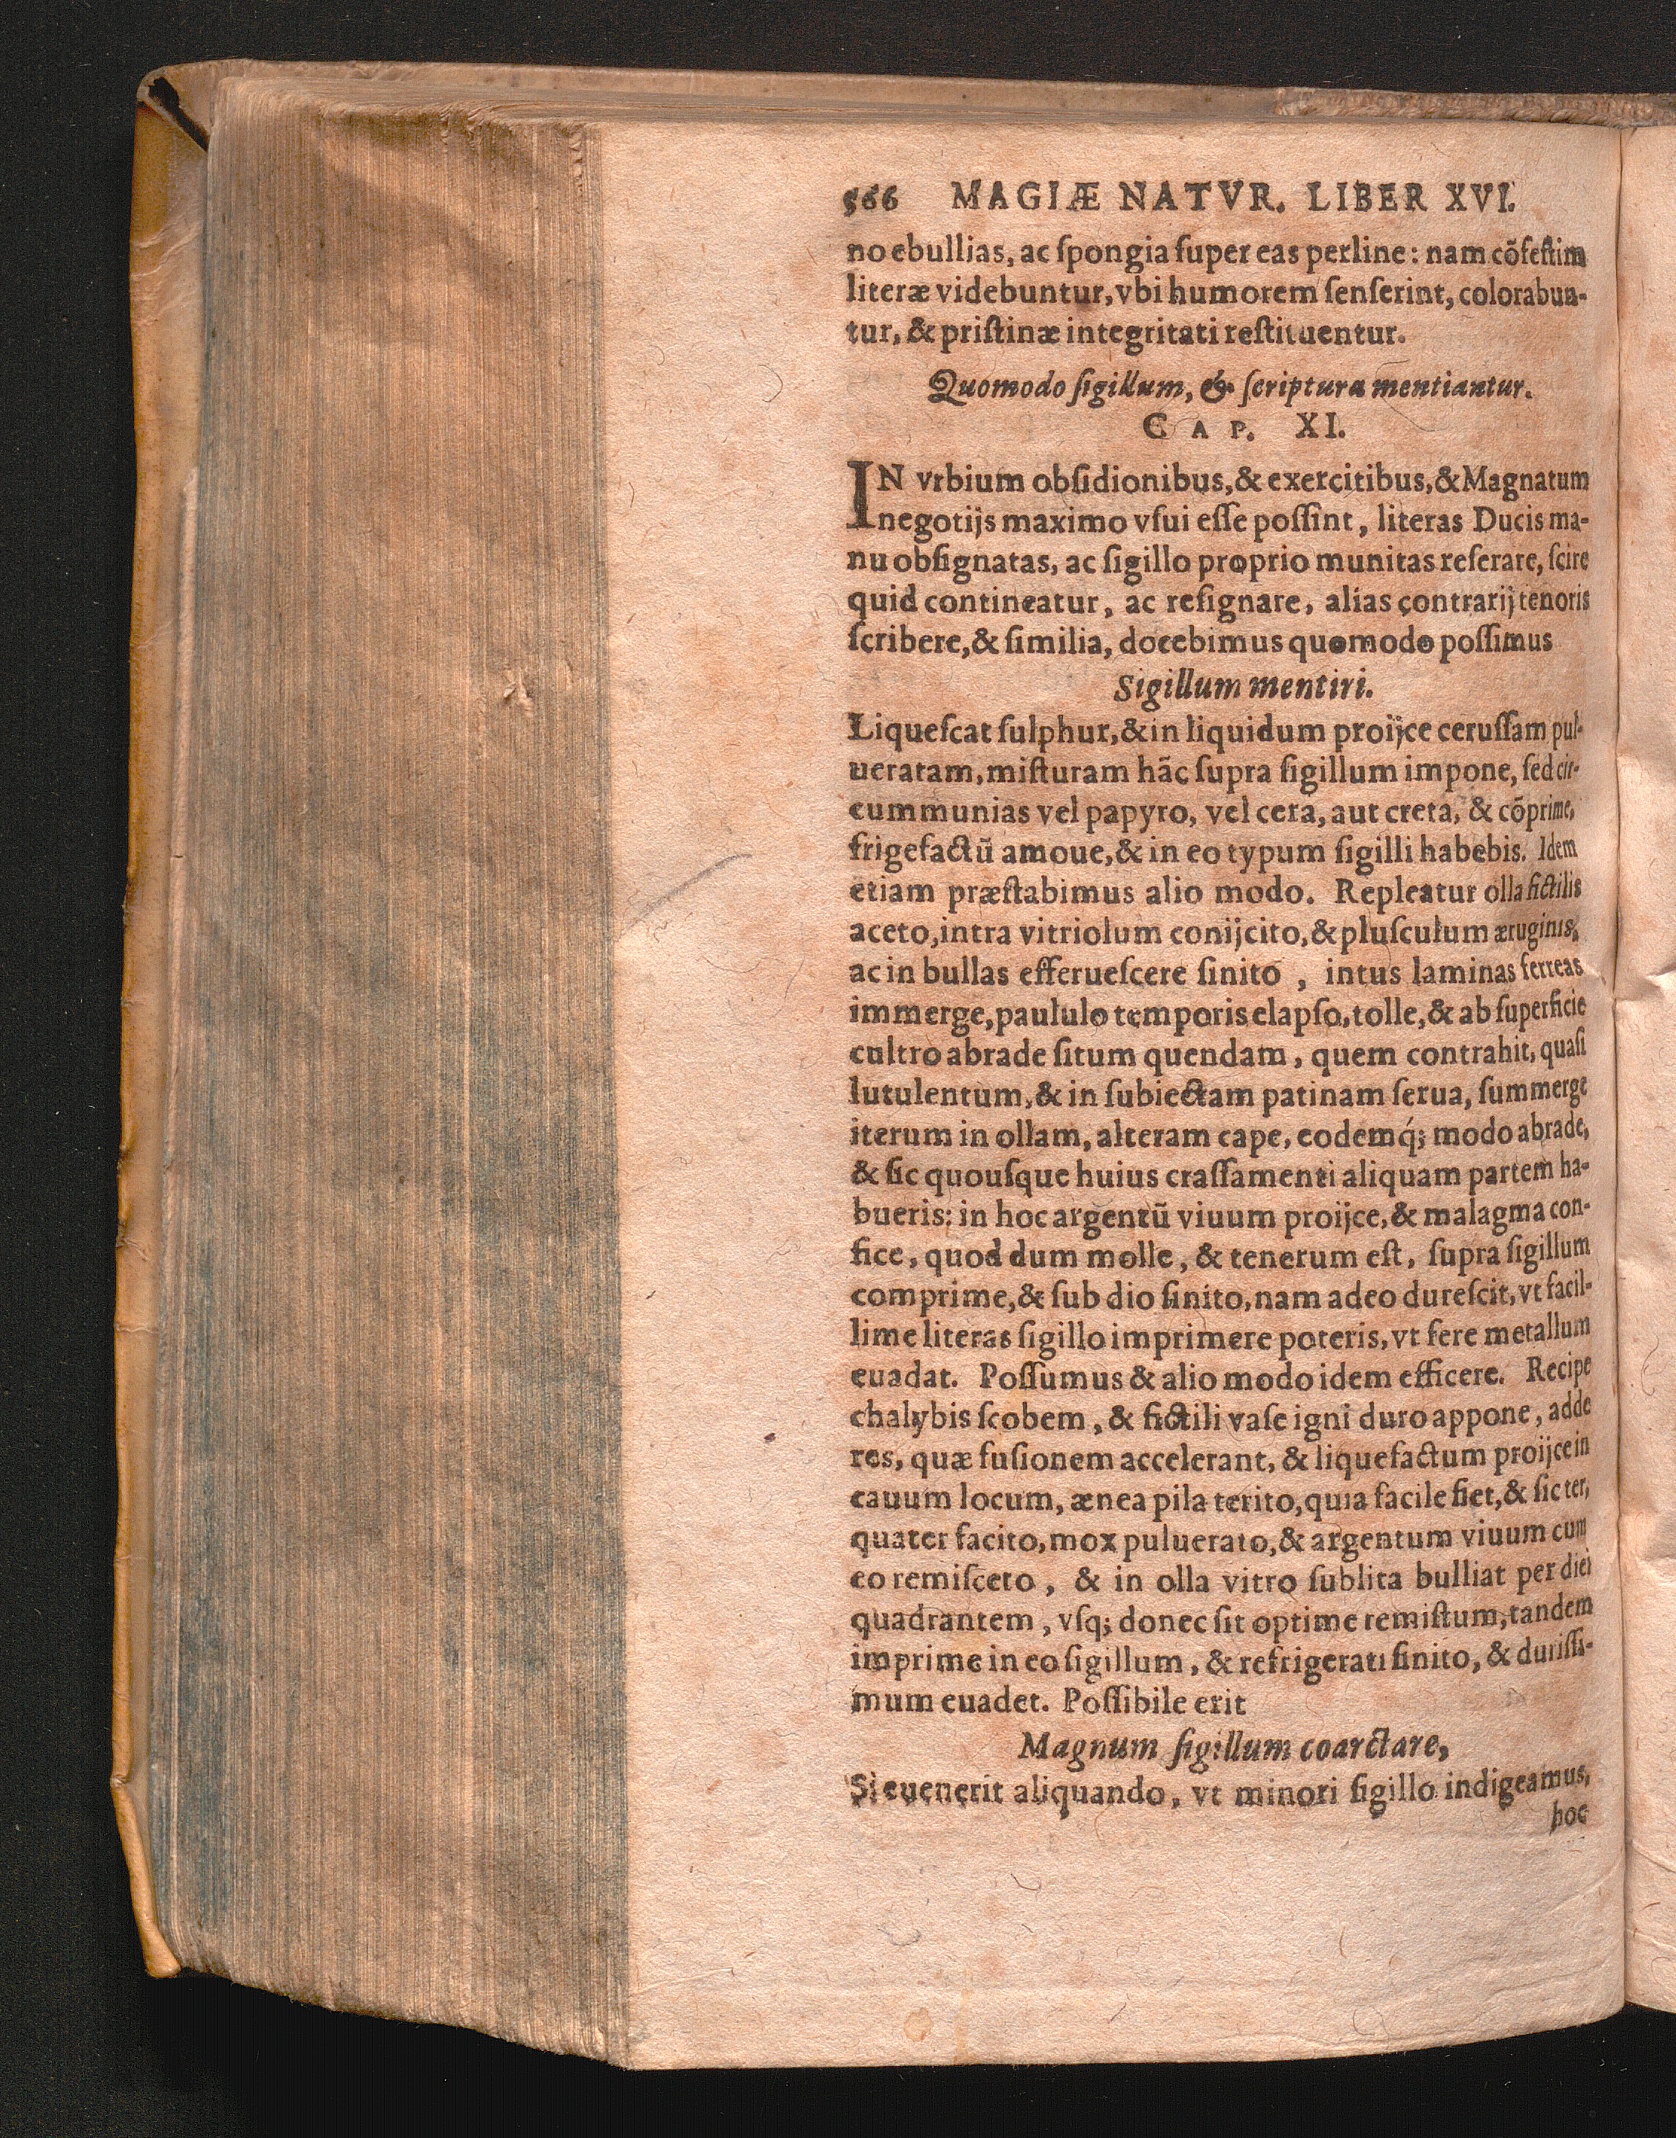 566 MAGIÆ NATVR. LIBER XVI.
no ebullias, ac ſpongia ſuper eas perline: nam cõfeſtim
literæ videbuntur, vbi humorem ſenſerint, colorabun-
tur, & priſtinæ integritati reſtituentur.
Quomodo ſigillum, & ſcriptura mentiantur.
CAP. XI.
IN vrbium obſidionibus, & exercitibus, & Magnatum
negotijs maximo vſui eſſe poſſint, literas Ducis ma-
nu obſignatas, ac ſigillo proprio munitas reſerare, ſcire
quid contineatur, ac reſignare, alias contrarij tenoris
ſcribere, & ſimilia, docebimus quomodo poſſimus
Sigillum mentiri.
Liqueſcat ſulphur, & in liquidum proijce ceruſſam pul-
ueratam, miſturam hãc ſupra ſigillum impone, ſed cir-
cummunias vel papyro, vel cera, aut creta, & cõprime,
frigefactũ amoue, & in eo typum ſigilli habebis. Idem
etiam præſtabimus alio modo. Repleatur olla fictilis
aceto, intra vitriolum conijcito, & pluſculum æruginis,
ac in bullas efferueſcere ſinito, intus laminas ferreas
immerge, paululo temporis elapſo, tolle, & ab ſuperficie
cultro abrade ſitum quendam, quem contrahit, quaſi
lutulentum, & in ſubiectam patinam ſerua, ſummerge
iterum in ollam, alteram cape, eodemq́; modo abrade,
& ſic quouſque huius craſſamenti aliquam partem ha-
bueris: in hoc argentũ viuum proijce, & malagma con-
fice, quod dum molle, & tenerum eſt, ſupra ſigillum
comprime, & ſub dio ſinito, nam adeo dureſcit, vt facil-
lime literas ſigillo imprimere poteris, vt fere metallum
euadat. Poſſumus & alio modo idem efficere. Recipe
chalybis ſcobem, & fictili vaſe igni duro appone, adde
res, quæ fuſionem accelerant, & liquefactum proijce in
cauum locum, ænea pila terito, quia facile fiet, & ſic ter,
quater facito, mox puluerato, & argentum viuum cum
eo remiſceto, & in olla vitro ſublita bulliat per diei
quadrantem, vſq; donec ſit optime remiſtum, tandem
imprime in eo ſigillum, & refrigerati ſinito, & duriſſi-
mum euadet. Poſſibile erit
Magnum ſigillum coarctare,
Si euenerit aliquando, vt minori ſigillo indigeamus,
hoc